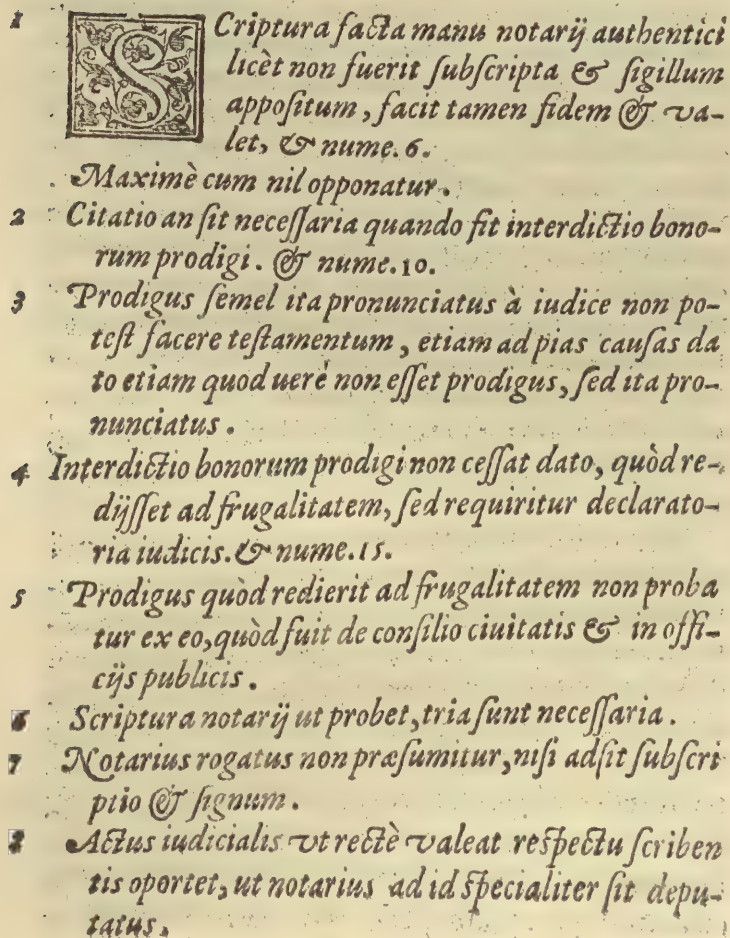 1 SCriptura facta manu notarij authentici
licèt non fuerit subscripta & sigillum
appositum, facit tamen fidem & va-
let, & nume. 6.
Maximè cum nil opponatur.
2 Citatio an sit necessaria quando fit interdictio bono-
rum prodigi. & nume. 10.
3 Prodigus semel ita pronunciatus à iudice non po-
test facere testamentum, etiam ad pias causas da
to etiam quod uerè non esset prodigus, sed ita pro-
nunciatus.
4 Interdictio bonorum prodigi non cessat dato, quòd re-
dijsset ad frugalitatem, sed requiritur declarato-
ria iudicis. & nume. 15.
5 Prodigus quòd redierit ad frugalitatem non proba
tur ex eo, quòd fuit de consilio ciuitatis & in offi-
cijs publicis.
6 Scriptura notarij ut probet, tria sunt necessaria.
7 Notarius rogatus non præsumitur, nisi adsit subscri
ptio & signum.
8 Actus iudicialis vt rectè valeat respectu scriben
tis oportet, ut notarius ad id specialiter sit depu-
tatus.